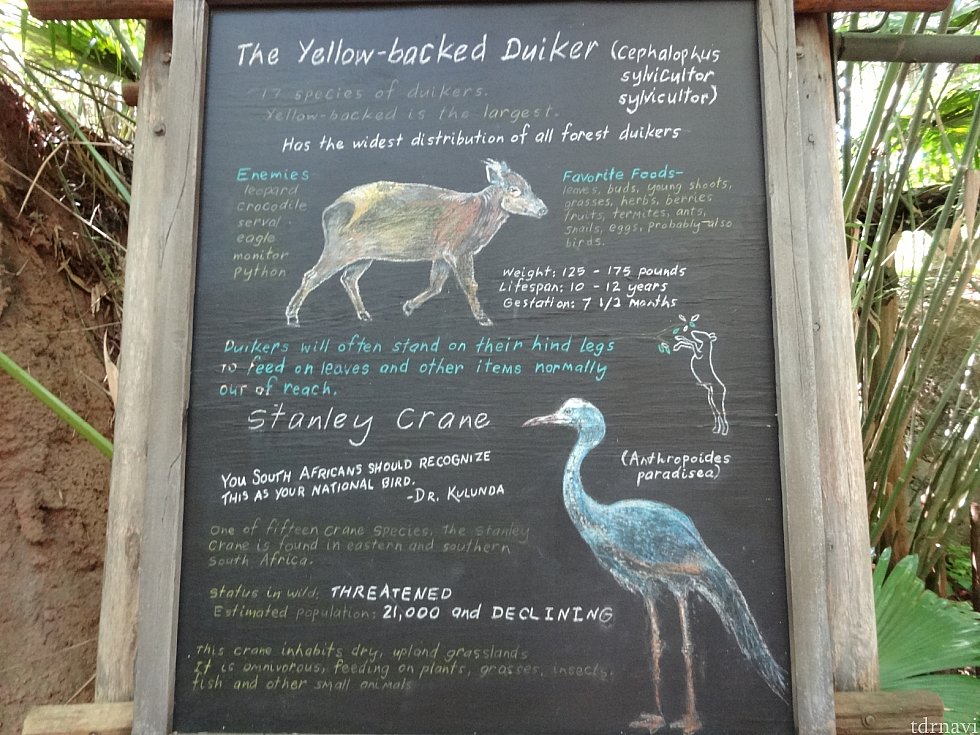 The Yellow-backed Duiker (Cephalophus
sylvicultor
sylvicultor)
17 species of duikers.
Yellow-backed is the largest.
Has the widest distribution of all forest duikers
Enemies
leopard
crocodile
serval
eagle
monitor
python
Favorite Foods-
leaves, buds, young shoots,
grasses, herbs, berries
fruits, termites, ants,
snails, eggs, probably also
birds.
Weight: 125 - 175 pounds
Lifespan: 10 - 12 years
Gestation: 7 1/2 months
Duikers will often stand on their hind legs
to feed on leaves and other items normally
out of reach.
Stanley Crane
(Anthropoides
paradisea)
YOU SOUTH AFRICANS SHOULD RECOGNIZE
THIS AS YOUR NATIONAL BIRD.
-DR. KULUNDA
One of fifteen crane species, the Stanley
Crane is found in eastern and southern
South Africa.
Status in wild: THREATENED
Estimated population: 21,000 and DECLINING
This crane inhabits dry, upland grasslands
It is omnivorous, feeding on plants, grasses, insects,
fish and other small animals
tdrnavi